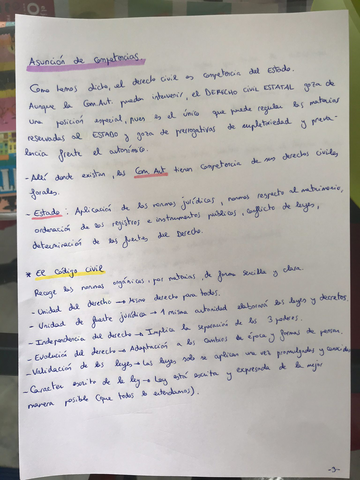 Asunción de competencias
Como hemos dicho, el derecho civil es competencia del Estado.
Aunque la Com.Aut. puedan intervenir, el DERECHO civil ESTATAL goza de
una posición especial, pues es el único que puede regular las materias
reservadas al ESTADO y goza de prerrogativas de supletoriedad y preva-
lencia frente al autonómico.
- Allí donde existan, las Com. Aut. tienen competencia de sus derechos civiles
forales.
- Estado: Aplicación de las normas jurídicas, normas respecto al matrimonio,
ordenación de los registros e instrumentos públicos, conflicto de leyes,
determinación de las fuentes del Derecho.
* El Código civil
Recoge las normas orgánicas, por materias, de forma sencilla y clara.
- Unidad del derecho → Mismo derecho para todos.
- Unidad de fuente jurídica → 1 misma autoridad elaborará las leyes y decretos.
- Independencia del derecho → Implica la separación de los 3 poderes.
- Evolución del derecho → Adaptación a los cambios de época y formas de pensar.
- Validación de las leyes → Las leyes solo se aplican una vez promulgadas y conocidas
- Caracter escrito de la ley → Ley está escrita y expresada de la mejor
manera posible (que todos lo entendamos).
-3-